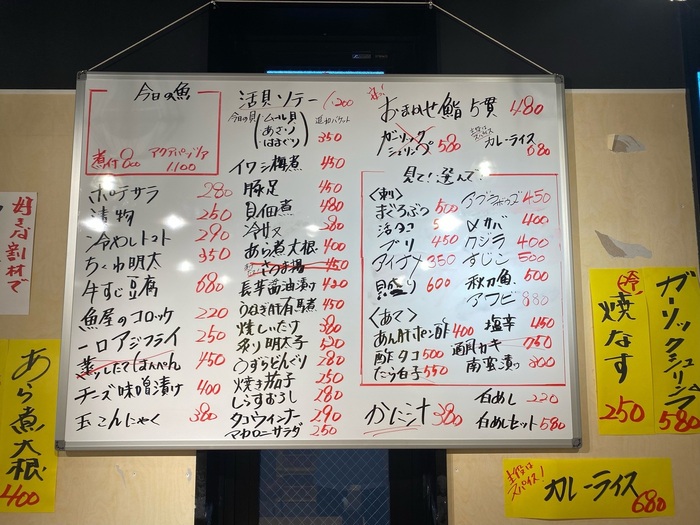 今日の魚
煮付 800
アクアパッツァ 1100
ポテサラ 280
漬物 250
冷やしトマト 290
ちくわ明太 350
牛すじ豆腐 680
魚屋のコロッケ 220
一口アジフライ 250
はんぺん 450
チーズ味噌漬け 400
玉こんにゃく 380
活貝ソテー 1,200
今日の貝 ムール貝 あさり はまぐり
追加バケット 350
イワシ梅煮 450
豚足 450
貝佃煮 480
冷サメ 280
あら煮大根 400
さつま揚 450
長芋醤油漬け 420
うなぎ肝有馬煮 450
焼しいたけ 380
炙り明太子 520
うずらどんぐり 280
焼き茄子 250
しらすおろし 280
タコウィンナー 290
マカロニサラダ 250
おまかせ鮨 5貫 480
ガーリックシュリンプ 580
主役はスパイス カレーライス 680
見て!選んで
〈刺〉
まぐろぶつ 500
活タコ
ブリ 450
アイナメ 350
貝盛り 600
アブラボウズ 450
〆サバ 400
クジラ 400
すじこ 500
秋刀魚 500
アワビ 880
〈あて〉
あん肝ポン酢 400
酢タコ 500
たら白子 550
塩辛 450
酒肴カキ 750
南蛮漬け 300
かに汁 380
白めし 220
白めしセット 580
好きな割材で
あら煮大根
400
冷 焼なす
250
ガーリックシュリンプ
580
主役はスパイス!
カレーライス
680